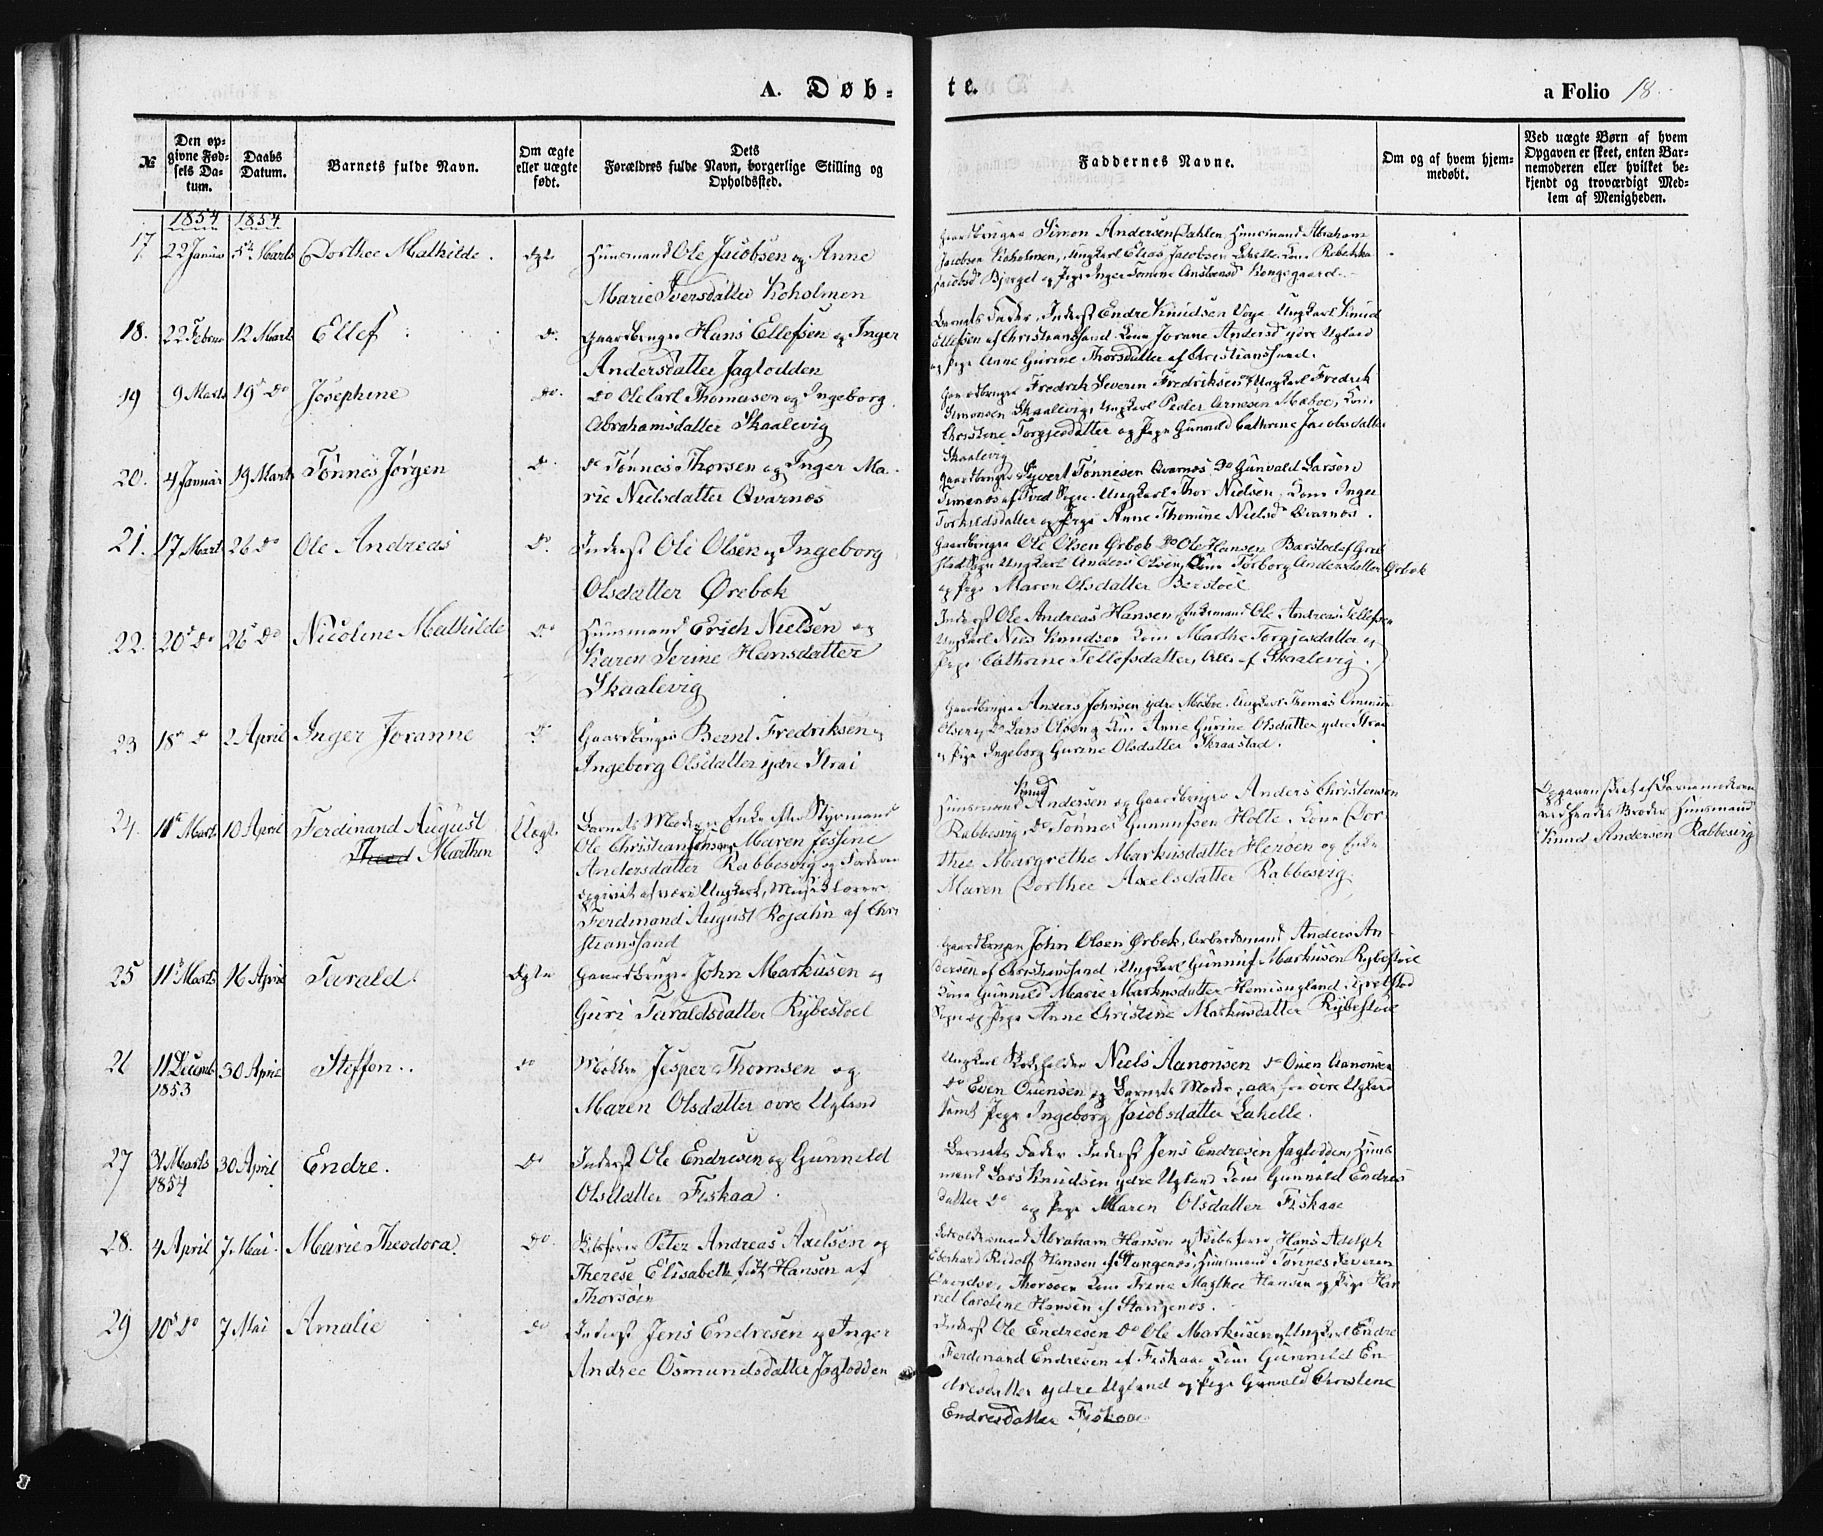 A. Døb-
te.
a Folio 18.
№
Den op-
givne Fød-
sels Da-
tum.
Daabs
Datum.
Barnets fulde Navn.
Om ægte
eller uægte
født.
Dets
Forældres fulde Navn, borgerlige Stilling og
Opholdssted.
Faddernes Navne.
Om og af hvem hjem-
medøbt.
Ved uægte Børn af hvem
Opgaven er skeet, enten Bar-
nemoderen eller hvilket be-
kjendt og troværdigt Med-
lem af Menigheden.
1854 1854
17 22 Januar 5te Marts Dorthee Mathilde. Ægte Huusmand Ole Jacobsen og Anne
Marie Iversdatter Koholmen
Gaardbruger Simon Andersen Dahlen, Huusmand Abraham
Jacobsen Koholmen, Ungkarl Elias Jacobsen Lahelle Kone Rebekka
Jacobsd Bjerget og Pige Inger Tomine Kongsgaard.
18. 22 Februar 12 Marts Ellef do. Gaardbruger Hans Ellefsen og Inger
Andersdatter Jagtodden
Barnets Fader, Inderst Endre Knudsen Voye Ungkarl Knud
Ellefsen af Christianssand Kone Jorane Andersd ydre Ugland
og Pige Anne Gurine Thorsdatter af Christianssand.
19 9 Marts 19de do Josephine do. do Ole Carl Thomasen og Ingeborg
Abrahamsdatter Skaalevig
Gaardbruger Fredrik Severin Fredriksen, Ungkarl Fredrik
Simonsen Skaalevig, Ungkarl Peder Arnesen Mæboe, Kone
Christine Torgjesdatter og Pige Gunnild Cathrine Jacobsdatter
Skaalevig
20. 4 Januar 19 Marts Tønnes Jørgen do. do Tønnes Thorsen og Inger Ma-
rie Nielsdatter Qvarnes
Gaardbruger Syvert Tønnesen Qvarnes do Gunvald Larsen
Timenes af Tved Sogn. Ungkarl Thor Nielsen, Kone Inger
Torkildsdatter og Pige Anne Thomine Nielsd Qvarnes.
21. 17 Mart 26 do Ole Andreas do. Inderst Ole Olsen og Ingeborg
Olsdatter Ørebek
Gaardbruger Ole Olsen Ørbek do Ole Hansen
Sogn Ungkarl Anders Olsen, Kone Torborg Andersdatter Ørbek
og Pige Maren Olsdatter
22. 20de do 26de do Nicoline Mathilde do Huusmand Erich Nielsen og
Karen Serine Hansdatter
Skaalevig
Inderst Ole Andreas Hansen, Enkemand Ole Andreas Tellefsen
Ungkarl Niels Knudsen Kone Marthe Torgjesdatter og
Pige Cathrine Tellefsdatter, Alle af Skaalevig.
23 18de do 2 April Inger Joranne do Gaardbruger Bernt Fredriksen og
Ingeborg Olsdatter ydre Strai
Gaardbruger Anders Johnsen ydre Mosbye, Ungkarl Thomas
Olsen og do Lars Olsen og Kone Anne Gurine Olsdatter ydre Strai
og Pige Ingeborg Gurine Olsdatter Skraastad.
24. 11te Marts 10 April Ferdinand August
Marthin
Uægte Barnets Moder er Enke efter Styrmand
Ole Christian Jensen, Maren Jossine
Andersdatter Rabbesvig og Faderen
opgivet at være Ungkarl,
Ferdinand August Rojahn af Chri
stianssand
Huusmand Knud Andersen og Gaardbruger Anders Christensen
Rabbesvig, do Tønnes Gunnufsen Holte, Kone Dor-
thee Margrethe Markusdatter Herøen og Enke
Maren Dorthee Axelsdatter Rabbesvig.
Opgaven skeet af Barnemoderen
ved hendes Broder Huusmand
Knud Andersen Rabbesvig
25 11te Marts 16 April Tarald. Ægte Gaardbruger John Markusen og
Guri Taraldsdatter Rybestoel
Gaardbruger John Olsen Ørbek, Arbeidsmand Anders An-
dersen af Christianssand, Ungkarl Gunnuf Markusen Rybestoel
Kone Gunnild Marie Markusdatter
Sogn og Pige Anne Christine Markusdatter Rybestoel
26 11 Decemb 30 April Steffen.. do Møller Jesper Thomsen og
1853
Maren Olsdatter øvre Ugland
Ungkarl Niels Aanonsen do Osen Aanonsen
do Even Osensen og Barnets Moder, alle fra øvre Ugland
samt Pige Ingeborg Jacobsdatter Lahelle.
27 31 Marts 30 April Endre. do Inderst Ole Endresen og Gunnild
1854
Olsdatter Fiskaa.
Barnets Fader, Inderst Jens Endresen Jagtodden, Huus-
mand Lars Knudsen ydre Ugland Kone Gunnild Endres
datter do og Pige Maren Olsdatter Fiskaae
28. 4 April 7 Mai. Marie Theodora. do Skibsfører Peter Andreas Axelsen og
Therese Elisabeth født Hansen af
Thorsøen
Abraham Hansen og Skibsfører Hans Adolph
Eberhard Rudolf Hansen af Stangenes, Huusmand Tønnes Severin
Thorsøen Kone Trine Magthee Hansen og Pige Har
riet Caroline Hansen af Stangenes.
29 10de do 7 Mai Amalie do Inderst Jens Endresen og Inger
Andree Osmundsdatter Jagtodden
Inderst Ole Endresen do Ole Markusen og Ungkarl Endre
Ferdinand Endresen af Fiskaae Kone Gunnild En
dresdatter ydre Ugland og Pige Gunvald Christine
Endresdatter Fiskaae